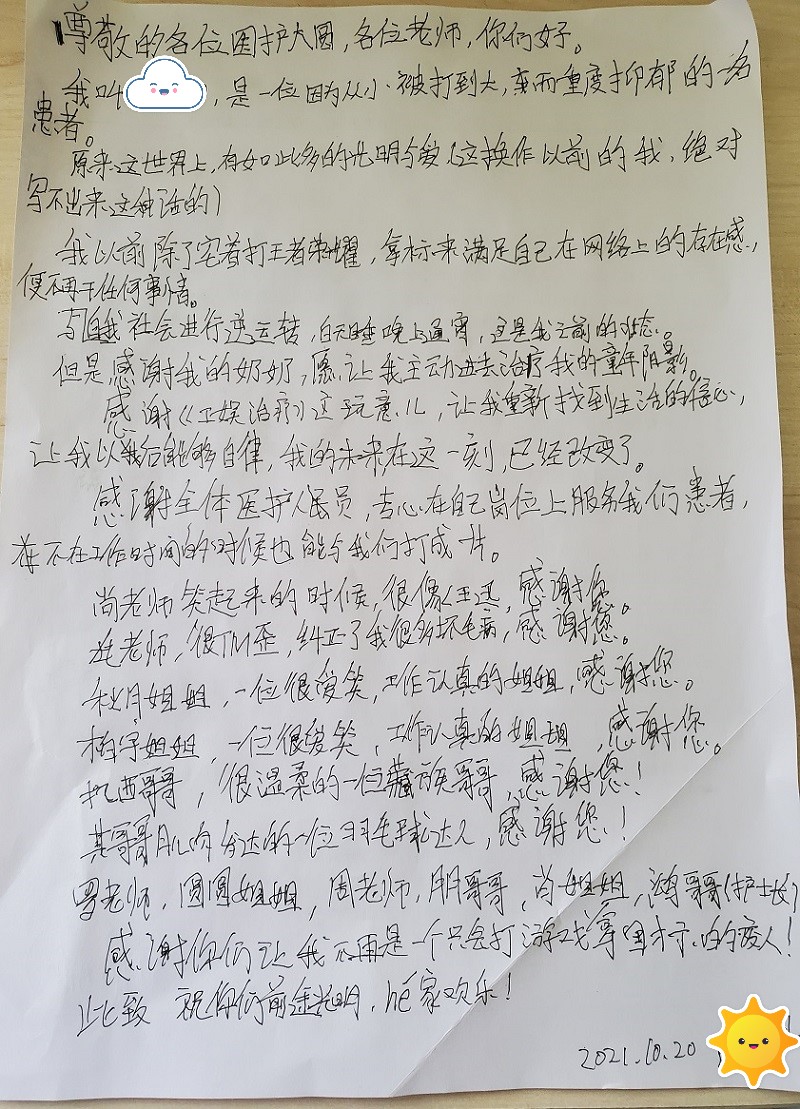 尊敬的各位医护大圆，各位老师，你们好。
我叫，是一位因为从小被打到大，变而重度抑郁的一名
患者。
原来这世界上，有如此多的光明与爱（这换作以前的我，绝对
写不出来这种话的）
我以前除了宅着打王者荣耀，拿标来满足自己在网络上的存在感，
便不再干任何事情。
与社会进行逆运转，白天睡晚上通宵，这是我之前的状态。
但是感谢我的奶奶，愿让我主动进去治疗我的童年阴影。
感谢《工娱治疗》这玩意儿，让我重新找到生活的信心，
让我以后能够自律，我的未来在这一刻，已经改变了。
感谢全体医护人员，专心在自己岗位上服务我们患者，
在不在工作时间的时候也能与我们打成一片。
尚老师笑起来的时候，很像，感谢您。
老师，很TM歪，纠正了我很多坏毛病，感谢您。
秋月姐姐，一位很爱笑，工作认真的姐姐，感谢您。
柏宇姐姐，一位很爱笑，工作认真的姐姐，感谢您。
扎西哥哥，很温柔的一位藏族哥哥，感谢您！
其哥哥肌肉发达的一位羽毛球达人，感谢您！
罗老师，圆圆姐姐，周老师，朋哥哥，肖姐姐，鸿哥哥（护士长）
感谢你们让我不再是一个只会打游戏拿国标的废人！
此致 祝你们前途光明，he家欢乐！
2021.10.20